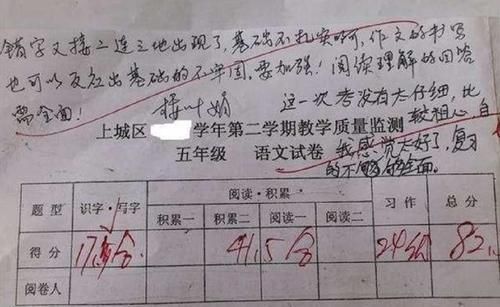 错字又接二连三地出现了,基础不扎实啊,作文的书写
也可以反应出基础的不牢固,要加强!阅读理解的回答
需全面!
这一次考没有太仔细,比
较粗心,自
上城区 学年第二学期教学质量监测
五年级 语文试卷
我感觉太好了,复习
的不够全面。
题型 识字·写字 阅读·积累 习作 总分
积累一 积累二 阅读一 阅读二
得分 41.5分 24分 82
阅卷人